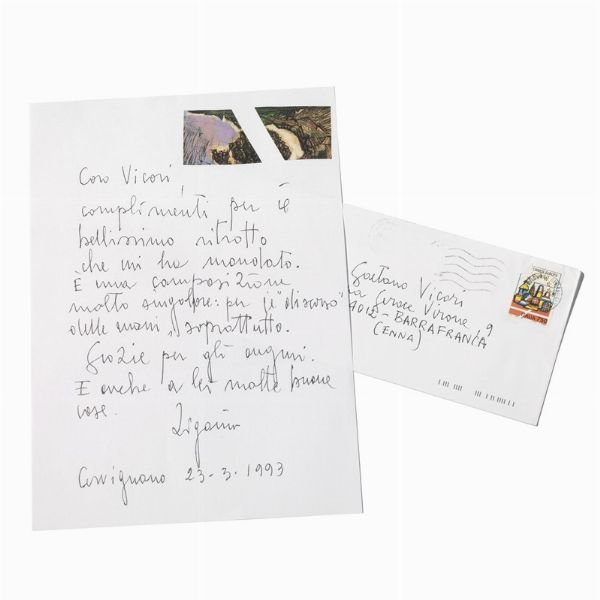 Caro Vicari,
complimenti per il
bellissimo ritratto
che mi ha mandato.
È una composizione
molto singolare: per il "discorso"
delle mani, soprattutto.
Grazie per gli auguri.
E anche a lei molte buone
cose.
Zigaina
Cervignano 23-3-1993
Gaetano Vicari
via Verrone, 9
BARRAFRANCA
(ENNA)
ITALIA 750